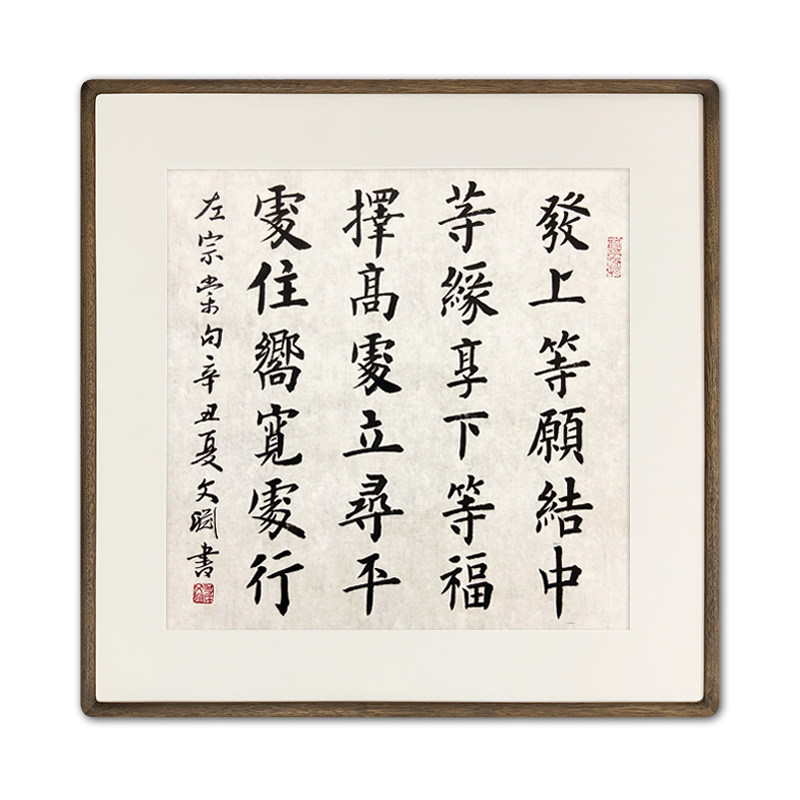 發上等願結中
等緣享下等福
擇高處立尋平
處住嚮寬處行
左宗棠句辛丑夏文書